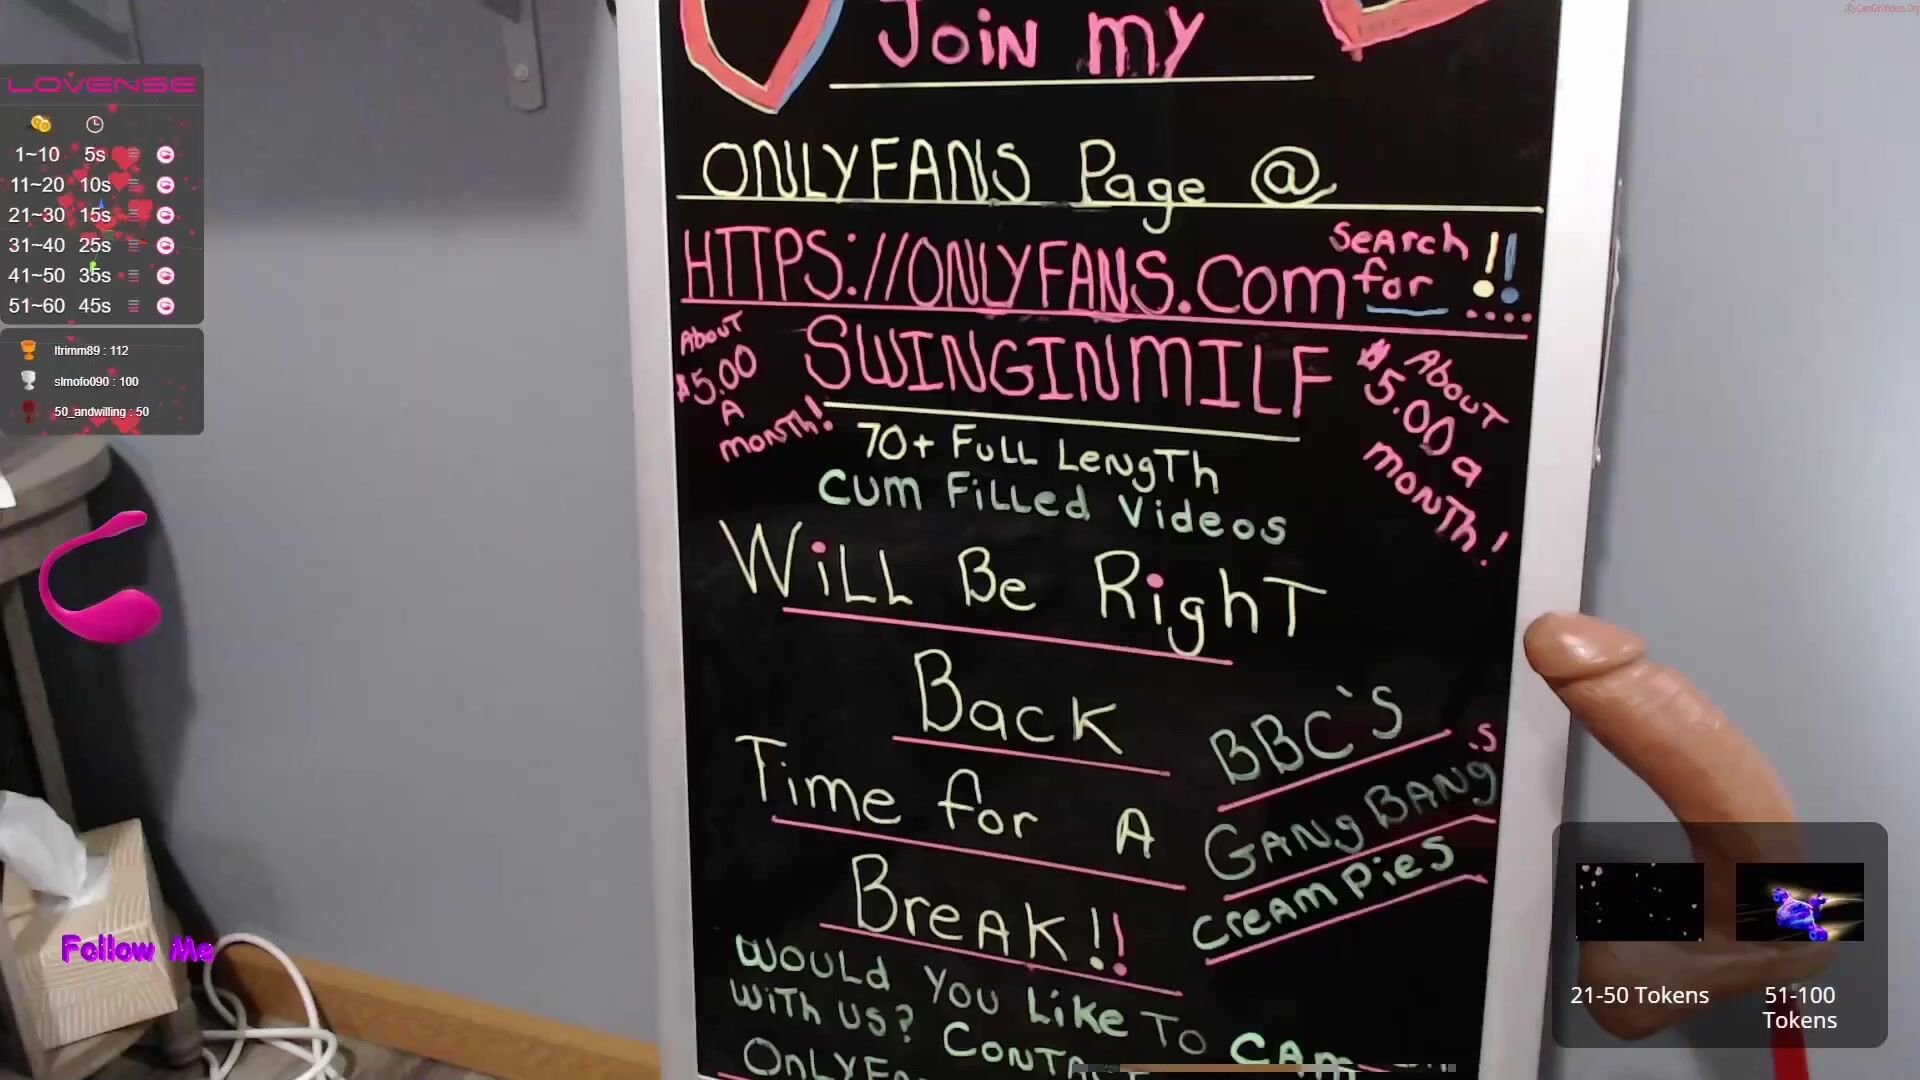 CamGirlVideos.Org
Join my
ONLYFANS Page @
HTTPS://ONLYFANS.Com
SeArch for !!
....
SWINGINMILF
About $5.00 A month!
About $5.00 a month!
70+ Full Length
Cum Filled Videos
Will Be Right
Back
Time for A
Break!!
BBC`S
GANgBANg
.s
creampies
Would You Like To CAM
With us? Contact
OnlyF
LOVENSE
1~10 5s
11~20 10s
21~30 15s
31~40 25s
41~50 35s
51~60 45s
ltrimm89 : 112
slmofo090 : 100
50_andwilling : 50
Follow Me
21-50 Tokens
51-100
Tokens